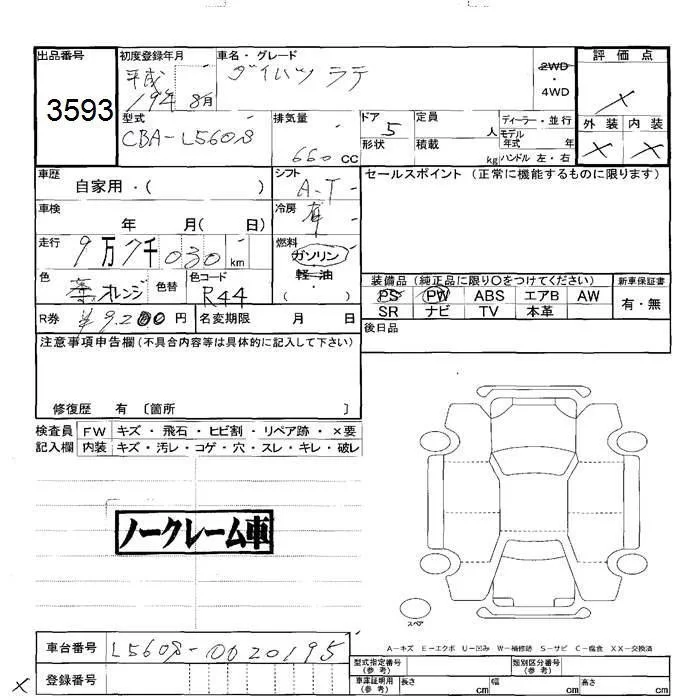 出品番号
3593
初度登録年月
平成
19年 8月
車名・グレード
ダイハツ ラテ
2WD
・
4WD
評価点
×
外装 内装
× ×
型式
CBA-L560S
排気量
660 CC
ドア 5
形状
定員 人
積載 kg
ディーラー・並行
モデル
年式 年
ハンドル 左・右
車歴 自家用・( )
シフト
A-T
セールスポイント (正常に機能するものに限ります)
車検
年 月( 日)
冷房
有
走行
9万7千030km
燃料
ガソリン
軽・油
( )
色
オレンジ
色替
色コード
R44
装備品 (純正品に限り○をつけてください)
PS PW ABS エアB AW
SR ナビ TV 本革
新車保証書
有・無
R券 ¥9,200円
名変期限 月 日
後日品
注意事項申告欄 (不具合内容等は具体的に記入して下さい)
修復歴 有 〔箇所 〕
検査員
記入欄
FW キズ・飛石・ヒビ割・リペア跡・×要
内装 キズ・汚レ・コゲ・穴・スレ・キレ・破レ
ノークレーム車
スペア
A-キズ E-エクボ U-凹み W-補修跡 S-サビ C-腐食 XX-交換済
車台番号 L560S-0020195
× 登録番号
型式指定番号
(参考)
類別区分番号
(参考)
車庫証明用
(参考)
長さ cm 幅 cm 高さ cm